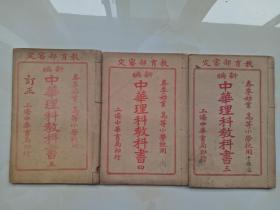 教育部審定
新編
春季始業 高等小學校用
中華理科教科書 五
訂正
上海中華書局印行
教育部審定
新編
春季始業 高等小學校用
中華理科教科書 四
上海中華書局印行
教育部審定
新編
春季始業 高等小學校用
中華理科教科書 三
上海中華書局印行